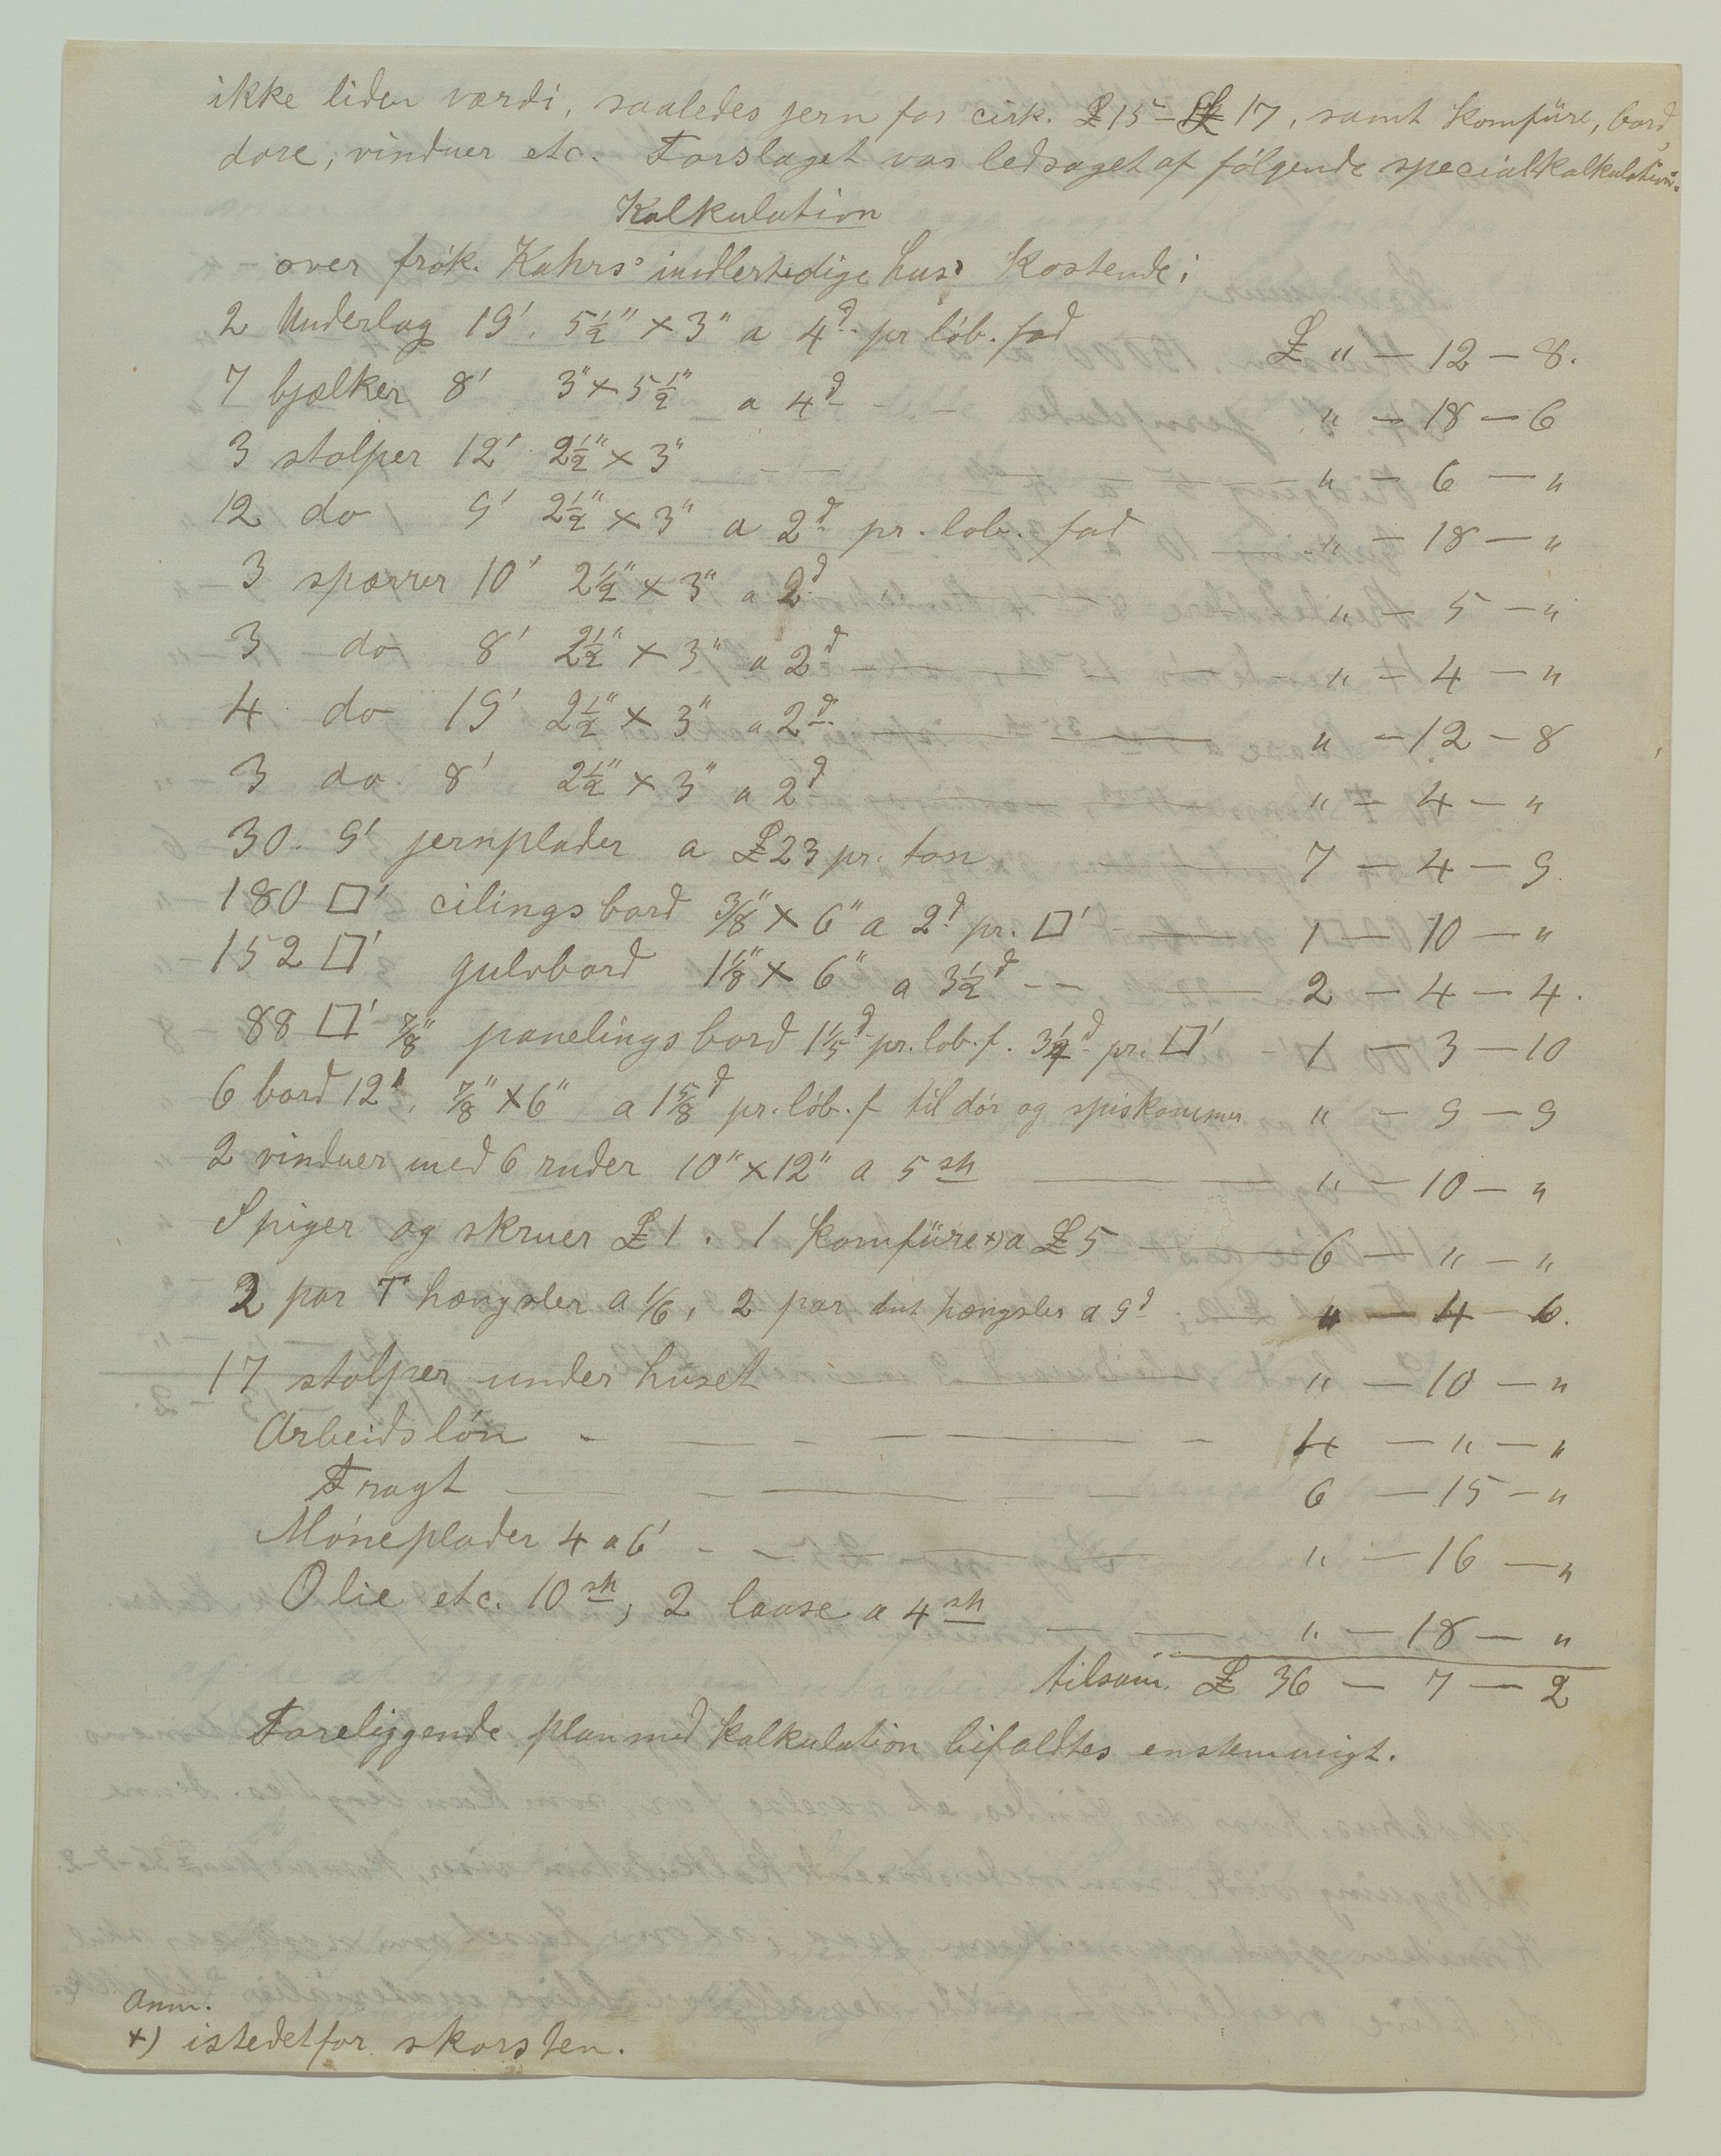 ikke liden værdi, saaledes jern for cirk. £15 - £17, samt komfüre, bord,
døre, vinduer etc. Forslaget var ledsaget af følgende specialkalkulation:
Kalkulation
over frøk. Kahrs's indlertidige hus's kostende;
2 Underlag 19'. 5½" × 3" a 4d pr løb. fod £ " — 12 — 8.
7 bjælker 8' 3" × 5½" a 4d - - - " — 18 — 6
3 stolper 12' 2½" × 3" — — — — — " — 6 — "
12 do 9' 2½" × 3" a 2d pr. løb. fod " — 18 — "
3 spærrer 10' 2½" × 3" a 2d — — " — 5 — "
3 do 8' 2½" × 3" a 2d — — — " — 4 — "
4 do 19' 2½" × 3" a 2d — — " — 12 — 8
3 do 8' 2½" × 3" a 2d — — — " — 4 — "
30. 9' jernplader a £23 pr. ton — — 7 — 4 — 9.
180 □' cilingsbord 3/8" × 6" a 2d pr. □' — — 1 — 10 — "
152 □' gulvbord 1 1/8" × 6" a 3½d - - — 2 — 4 — 4.
88 □' 7/8" panelingsbord 1 1/5d pr. løb. f. 3¼d pr. □' - 1 — 3 — 10
6 bord 12". 7/8" × 6" a 1 5/8d pr. løb. f til dør og spiskammer " — 9 — 9
2 vinduer med 6 ruder 10" × 12" a 5 sh — — " — 10 — "
Spiger og skruer £1. 1 komfüre ×) a £5 — — 6 — " — "
2 par T hængsler a 1/6, 2 par but hængsler a 9d — " — 4 — 6.
17 stolper under huset — — — " — 10 — "
Arbeidsløn - — - — — - 4 — " — "
Fragt — — - — - — 6 — 15 — "
Møneplader 4 a 6' - - — — — " — 16 — "
Olie etc. 10 sh, 2 laase a 4 sh — — " — 18 — "
tilsam. £ 36 — 7 — 2
Foreliggende plan med kalkulation bifaldtes enstemmigt.
Anm.
×) istedetfor skorsten.